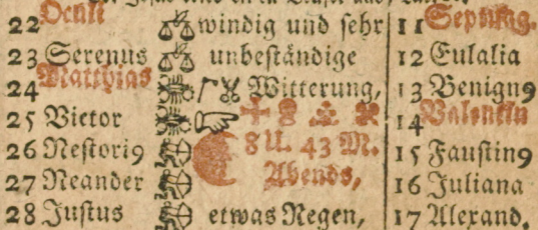 22 Oculi windig und sehr 11 Septuag.
23 Serenus unbeständige 12 Eulalia
24 Matthias Witterung, 13 Benignꝰ
25 Victor 14 Valentin
26 Nestoriꝰ 8 U. 43 M. 15 Faustinꝰ
27 Neander Abends, 16 Juliana
28 Justus etwas Regen, 17 Alexand.